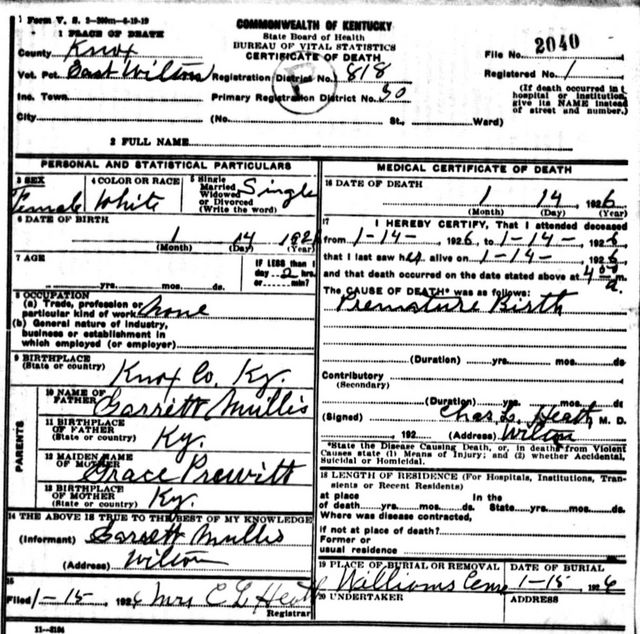 1 Form V. S. 2-200m-6-19-19
COMMONWEALTH OF KENTUCKY
State Board of Health
BUREAU OF VITAL STATISTICS
CERTIFICATE OF DEATH
1 PLACE OF DEATH
County Knox
File No. 2040
Vot. Pct. East Wilton Registration District No. 818
Registered No. 1
Inc. Town Primary Registration District No. 30
(If death occurred in a hospital or institution, give its NAME instead of street and number.)
City (No. St., Ward)
2 FULL NAME
PERSONAL AND STATISTICAL PARTICULARS
3 SEX Female
4 COLOR OR RACE White
5 Single Married Widowed or Divorced (Write the word) Single
6 DATE OF BIRTH
1 14 1926
(Month) (Day) (Year)
7 AGE
yrs. mos. ds.
IF LESS than 1
day 2 hrs.
or min?
8 OCCUPATION
(a) Trade, profession or
particular kind of work None
(b) General nature of industry,
business or establishment in
which employed (or employer)
9 BIRTHPLACE
(State or country) Knox Co. Ky.
PARENTS
10 NAME OF
FATHER Garrett Mullis
11 BIRTHPLACE
OF FATHER
(State or country) Ky.
12 MAIDEN NAME
OF MOTHER Grace Prewitt
13 BIRTHPLACE
OF MOTHER
(State or country) Ky.
14 THE ABOVE IS TRUE TO THE BEST OF MY KNOWLEDGE
(Informant) Garrett Mullis
(Address) Wilton
15
Filed 1-15- 1926 Mrs C L Heath
Registrar
11-3184
MEDICAL CERTIFICATE OF DEATH
16 DATE OF DEATH
1 14 1926
(Month) (Day) (Year)
17 I HEREBY CERTIFY, That I attended deceased
from 1-14- 1926, to 1-14- 1926,
that I last saw her alive on 1-14- 1926,
and that death occurred on the date stated above at 4 00 a. m.
The CAUSE OF DEATH* was as follows:
Premature Birth
(Duration) yrs. mos. ds
Contributory
(Secondary)
(Duration) yrs. mos. ds
(Signed) Chas. L. Heath, M. D.
, 192 (Address) Wilton
*State the Disease Causing Death, or, in deaths from Violent
Causes state (1) Means of Injury; and (2) whether Accidental,
Suicidal or Homicidal.
18 LENGTH OF RESIDENCE (For Hospitals, Institutions, Tran-
sients or Recent Residents)
at place In the
of death yrs. mos. ds. State yrs. mos. ds.
Where was disease contracted,
if not at place of death?
Former or
usual residence
19 PLACE OF BURIAL OR REMOVAL Williams Cem
DATE OF BURIAL 1-15 1926
20 UNDERTAKER
ADDRESS